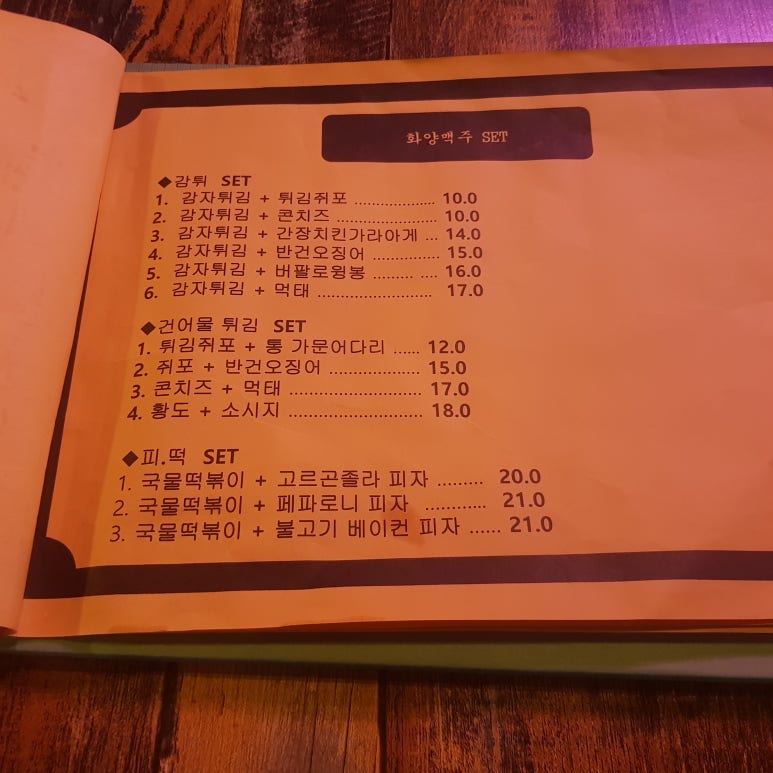 화양맥주 SET
◆감튀 SET
1. 감자튀김 + 튀김쥐포 ................... 10.0
2. 감자튀김 + 콘치즈 ....................... 10.0
3. 감자튀김 + 간장치킨가라아게 ... 14.0
4. 감자튀김 + 반건오징어 ............... 15.0
5. 감자튀김 + 버팔로윙봉 ......... .... 16.0
6. 감자튀김 + 먹태 .......................... 17.0
◆건어물 튀김 SET
1. 튀김쥐포 + 통 가문어다리 ...... 12.0
2. 쥐포 + 반건오징어 .................... 15.0
3. 콘치즈 + 먹태 ............................ 17.0
4. 황도 + 소시지 ............................ 18.0
◆피.떡 SET
1. 국물떡볶이 + 고르곤졸라 피자 ......... 20.0
2. 국물떡볶이 + 페파로니 피자 ............ 21.0
3. 국물떡볶이 + 불고기 베이컨 피자 ...... 21.0